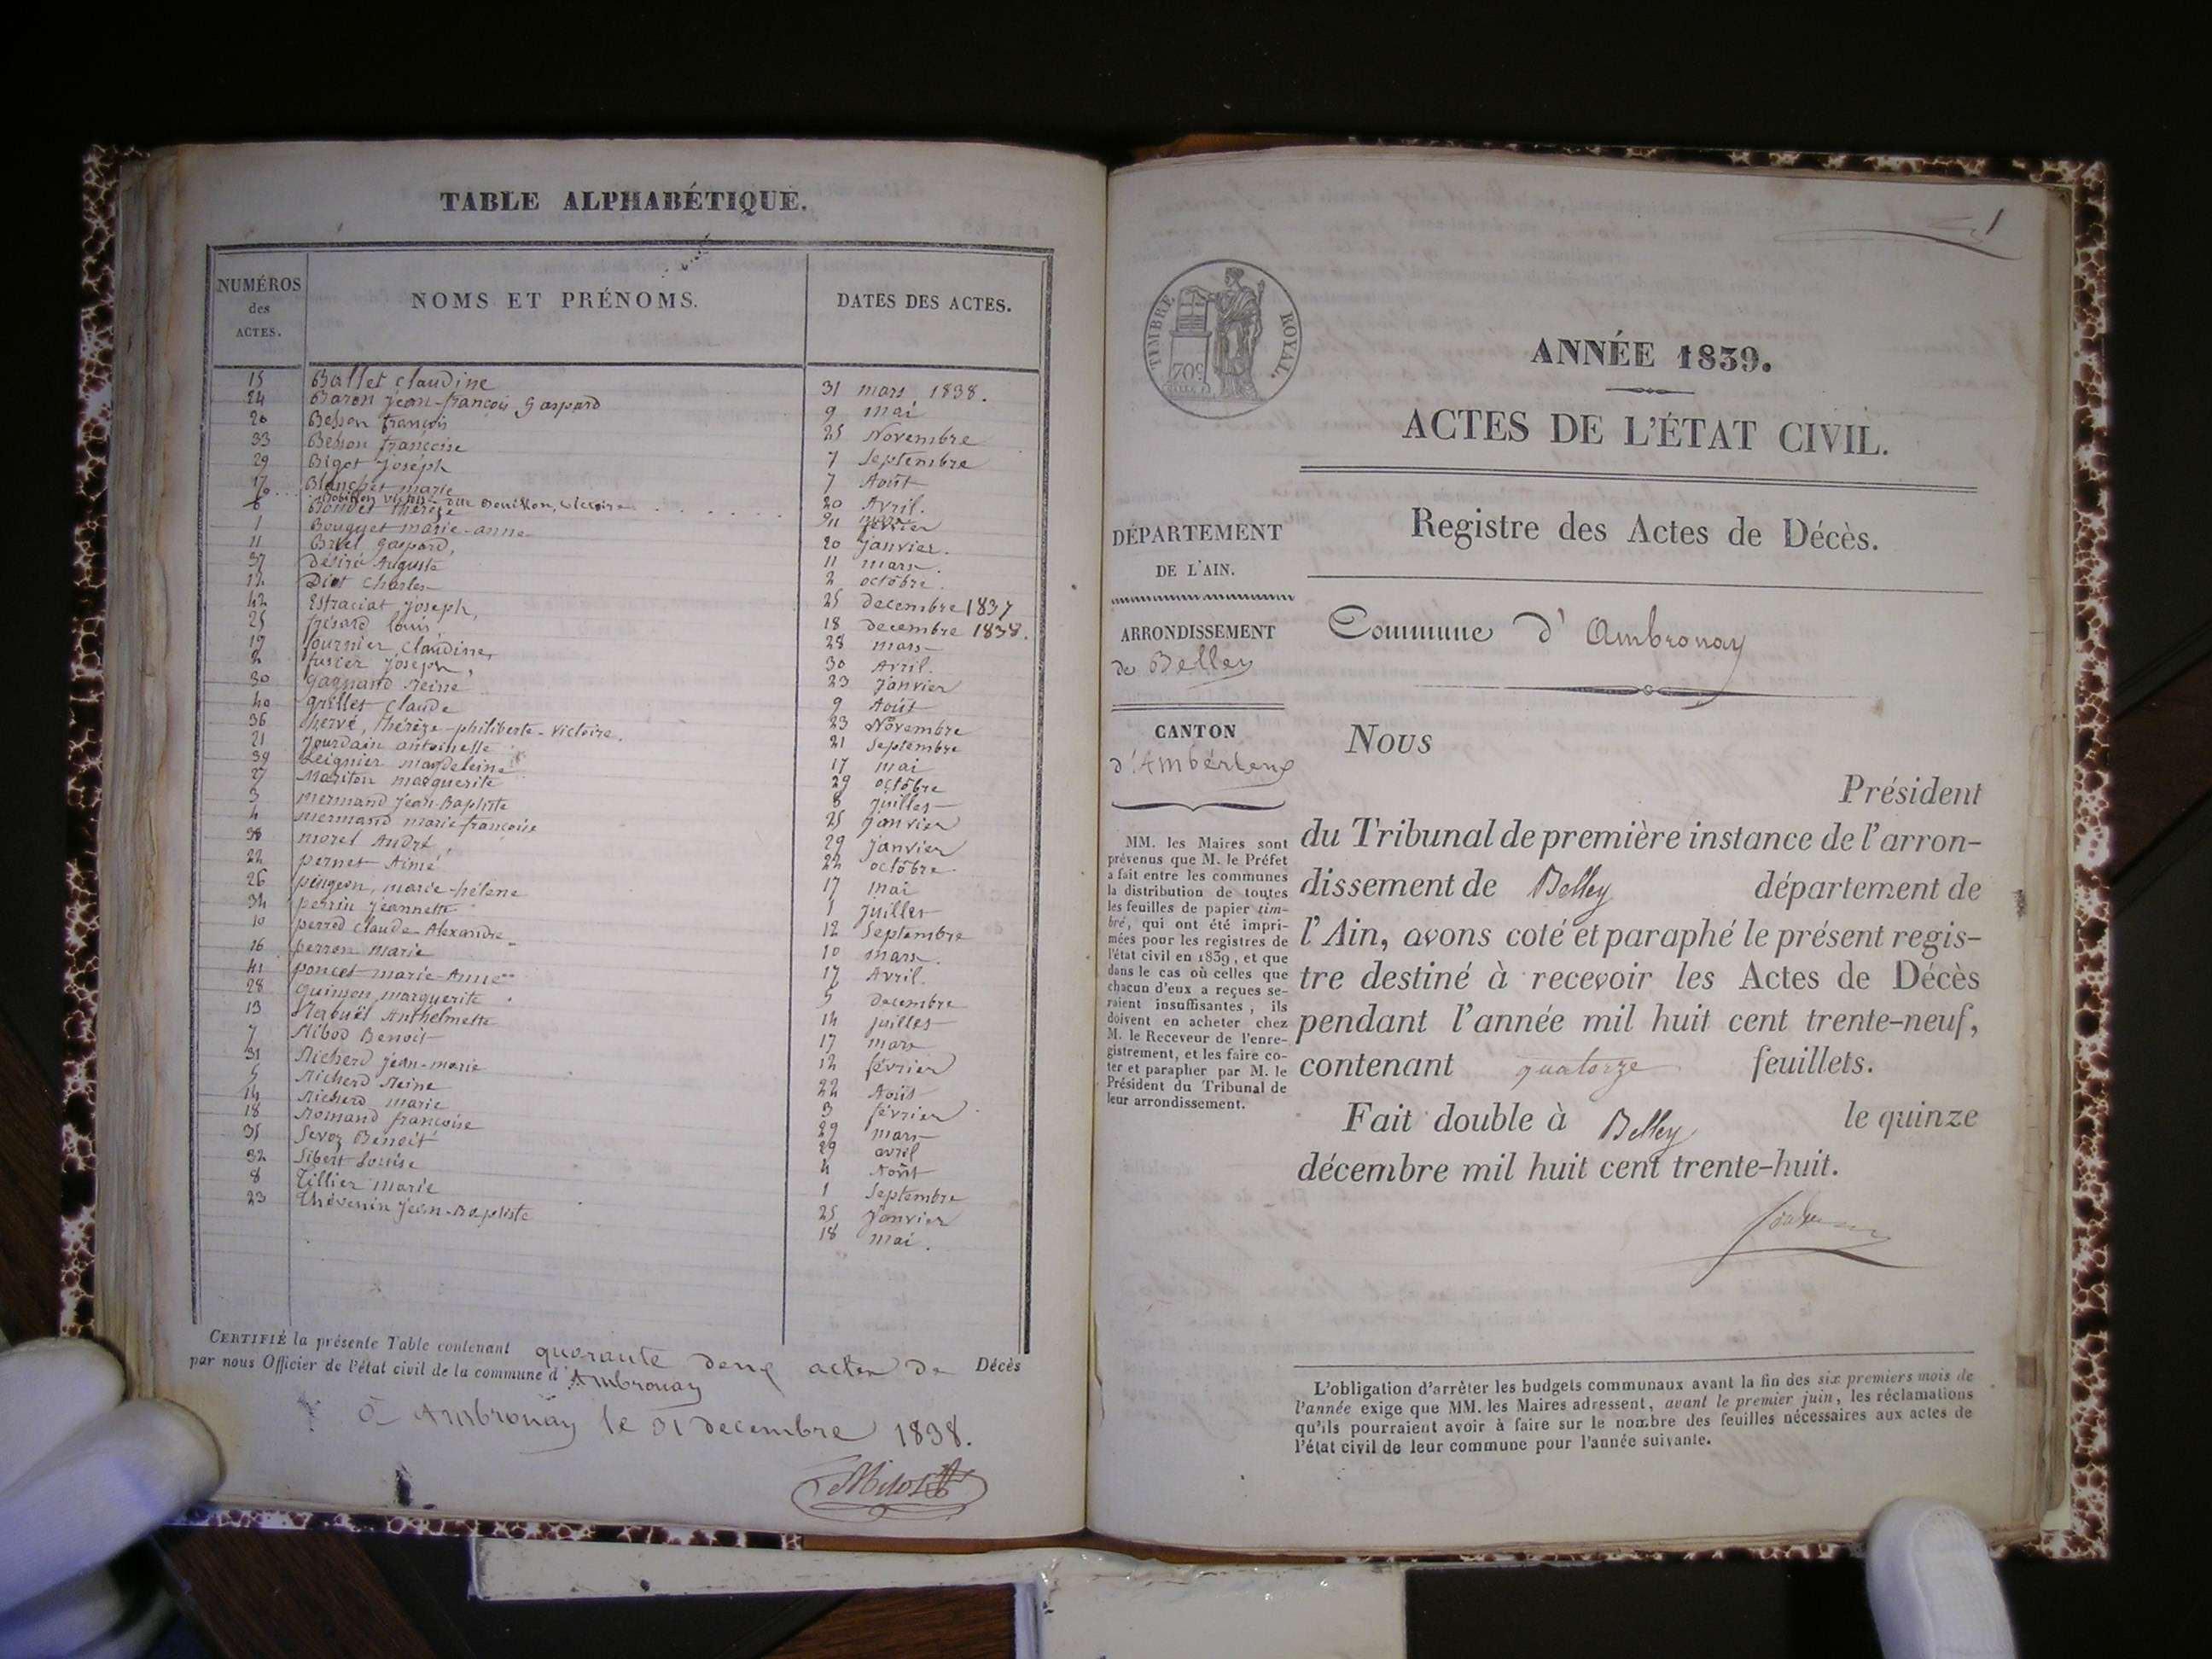 TABLE ALPHABÉTIQUE.
NUMÉROS des ACTES. NOMS ET PRÉNOMS. DATES DES ACTES.
15 Ballet claudine 31 mars 1838.
24 Baron jean-françois Gaspard 9 mai
20 Besson françois 25 Novembre
33 Besson françoise 7 Septembre
29 Bigot Joseph 7 Août
17 Blanchet marie 20 Avril.
Bobillon dite Bouillon, victoire
6 Blondet thérèze février
1 Bouguet marie-anne 20 janvier.
11 Brvet Gaspard, 11 mars.
37 Désiré Auguste 2 octobre.
12 Diot Charles 25 decembre 1837
42 Estraciat Joseph, 18 decembre 1838.
25 frésard louis 28 mars
19 fournier, claudine, 30 Avril.
2 fusier joseph, 23 janvier
30 gagnand Reine 9 Août
40 grillet claude 23 Novembre
36 hervé, thérèze-philiberte-victoire. 21 Septembre
21 Jourdain antoinette 17 mai
39 Leignier magdeleine 29 octobre
27 Mariton marguerite 8 juillet
3 mermand jean-Baptiste 25 janvier
4 mermand marie françoise 29 janvier
38 morel André, 22 octobre.
22 pernet Aimé 17 mai
26 pingeon, marie-hélène 1 juillet
34 perrin jeannette 12 Septembre
10 perrod claude-Alexandre 10 mars.
16 perron marie 17 Avril.
41 poncet marie-Anne 5 decembre
28 quinson marguerite. 14 juillet
13 Rabuël Anthelmette 17 mars
7 Ribod Benoit 12 février
31 Richerd jean-marie 22 Août
5 Richerd Reine 3 février
14 Richerd marie 29 mars
18 Romand françoise 29 avril
35 Sevoz Benoit 4 Août
32 Sibert Louise 1 Septembre
8 Tillier marie 25 Janvier
23 Thévenin jean-Baptiste 18 mai.
CERTIFIÉ la présente Table contenant quarante deux actes de Décès
par nous Officier de l'état civil de la commune d'Ambronay
à Ambronay le 31 decembre 1838.
1
TIMBRE ROYAL.
70c
ANNÉE 1839.
ACTES DE L'ÉTAT CIVIL.
Registre des Actes de Décès.
DÉPARTEMENT
DE L'AIN.
ARRONDISSEMENT
de Belley
CANTON
d'Ambérieux
MM. les Maires sont
prévenus que M. le Préfet
a fait entre les communes
la distribution de toutes
les feuilles de papier tim-
bré, qui ont été impri-
mées pour les registres de
l'état civil en 1839, et que
dans le cas où celles que
chacun d'eux a reçues se-
raient insuffisantes, ils
doivent en acheter chez
M. le Receveur de l'enre-
gistrement, et les faire co-
ter et parapher par M. le
Président du Tribunal de
leur arrondissement.
Commune d'Ambronay
Nous
Président
du Tribunal de première instance de l'arron-
dissement de Belley département de
l'Ain, avons coté et paraphé le présent regis-
tre destiné à recevoir les Actes de Décès
pendant l'année mil huit cent trente-neuf,
contenant quatorze feuillets.
Fait double à Belley le quinze
décembre mil huit cent trente-huit.
L'obligation d'arrêter les budgets communaux avant la fin des six premiers mois de
l'année exige que MM. les Maires adressent, avant le premier juin, les réclamations
qu'ils pourraient avoir à faire sur le nombre des feuilles nécessaires aux actes de
l'état civil de leur commune pour l'année suivante.